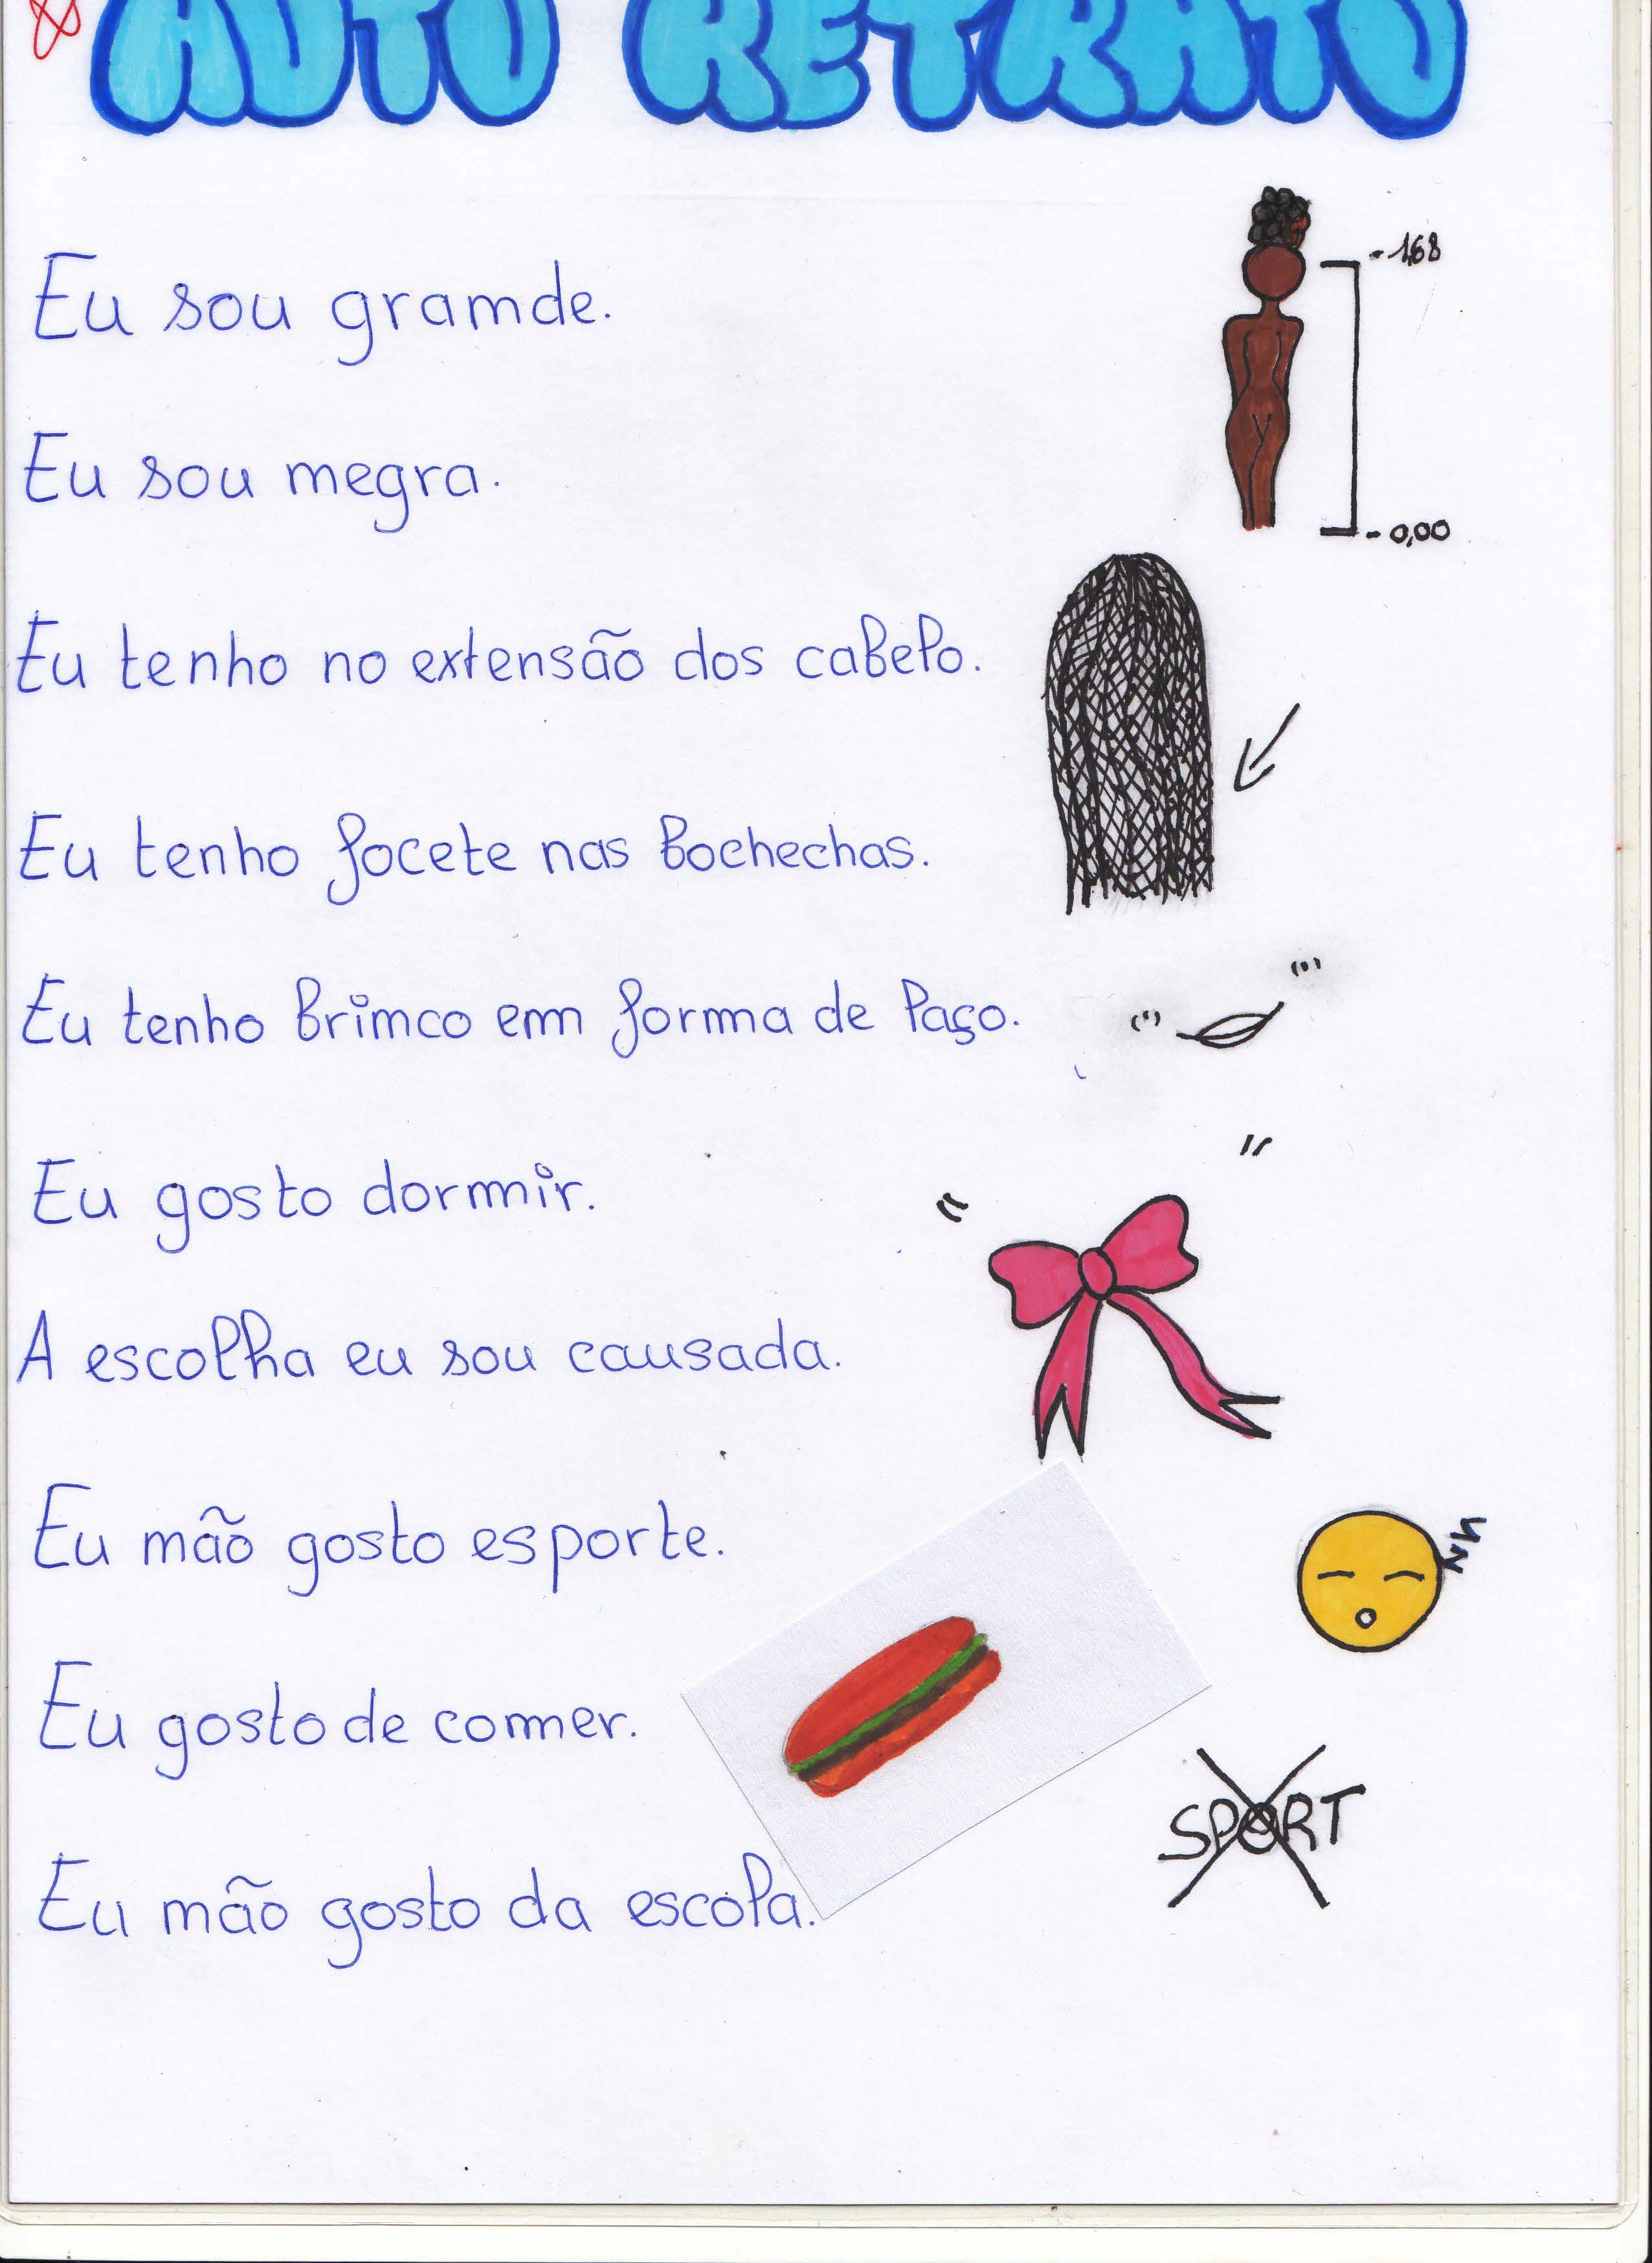 AUTO RETRATO
- 1,68
Eu sou gramde.
Eu sou megra.
- 0,00
Eu tenho no extensão dos cabelo.
Eu tenho focete nas bochechas.
Eu tenho brimco em forma de laço.
Eu gosto dormir.
A escolha eu sou causada.
Eu mão gosto esporte.
Eu gosto de comer.
SPORT
Eu mão gosto da escola.